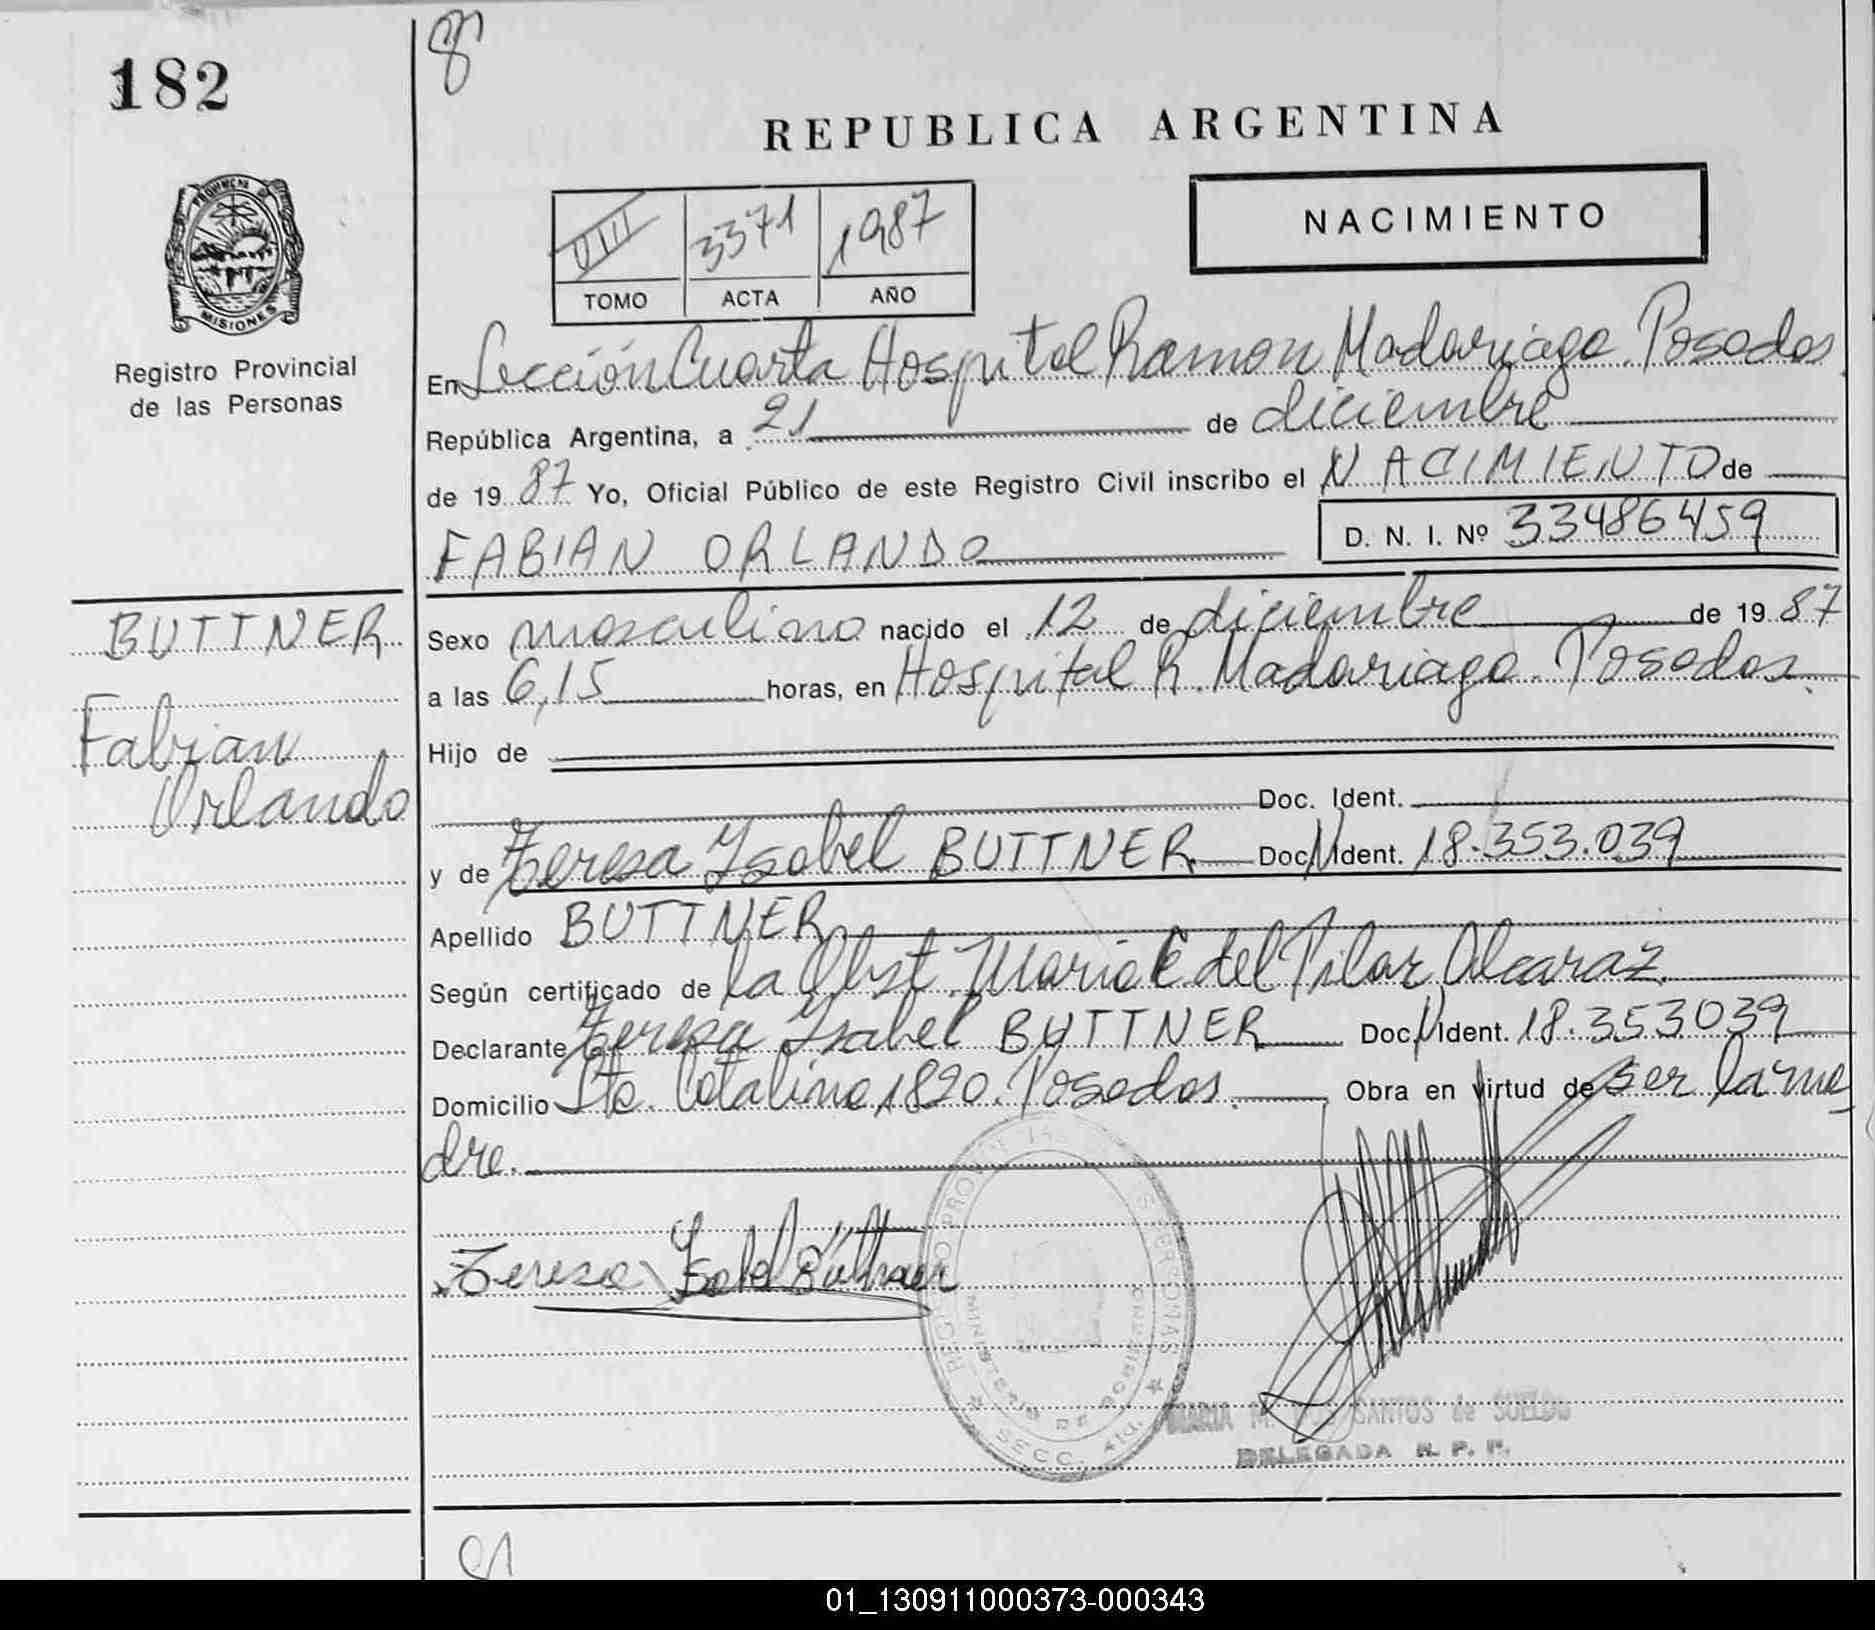 182
8
REPUBLICA ARGENTINA
PROVINCIA DE
MISIONES
VIII 3371 1987
TOMO ACTA AÑO
NACIMIENTO
Registro Provincial
de las Personas
En Sección Cuarta Hospital Ramon Madariaga. Posadas
República Argentina, a 21 de diciembre
de 1987 Yo, Oficial Público de este Registro Civil inscribo el NACIMIENTO de
FABIAN ORLANDO D. N. I. Nº 33486459
BUTTNER
Fabian
Orlando
Sexo masculino nacido el 12 de diciembre de 1987
a las 6,15 horas, en Hospital R. Madariaga. Posadas.
Hijo de
Doc. Ident.
y de Teresa Ysabel BUTTNER Doc. Ident. 18.353.039
Apellido BUTTNER
Según certificado de la Obst. Maria E del Pilar Alcaraz.
Declarante Teresa Ysabel BUTTNER Doc. Ident. 18.353039
Domicilio Sta. Catalina 1820. Posadas. Obra en virtud de ser la ma
dre.
Teresa Ysabel Buttner
MINISTERIO DE GOBIERNO
SECC. 4ta.
MARIA M. DOS SANTOS de SUELDO
DELEGADA R. P. P.
01_130911000373-000343